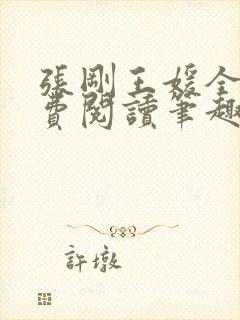 張剛王媛全
費閱讀筆趣
許墩